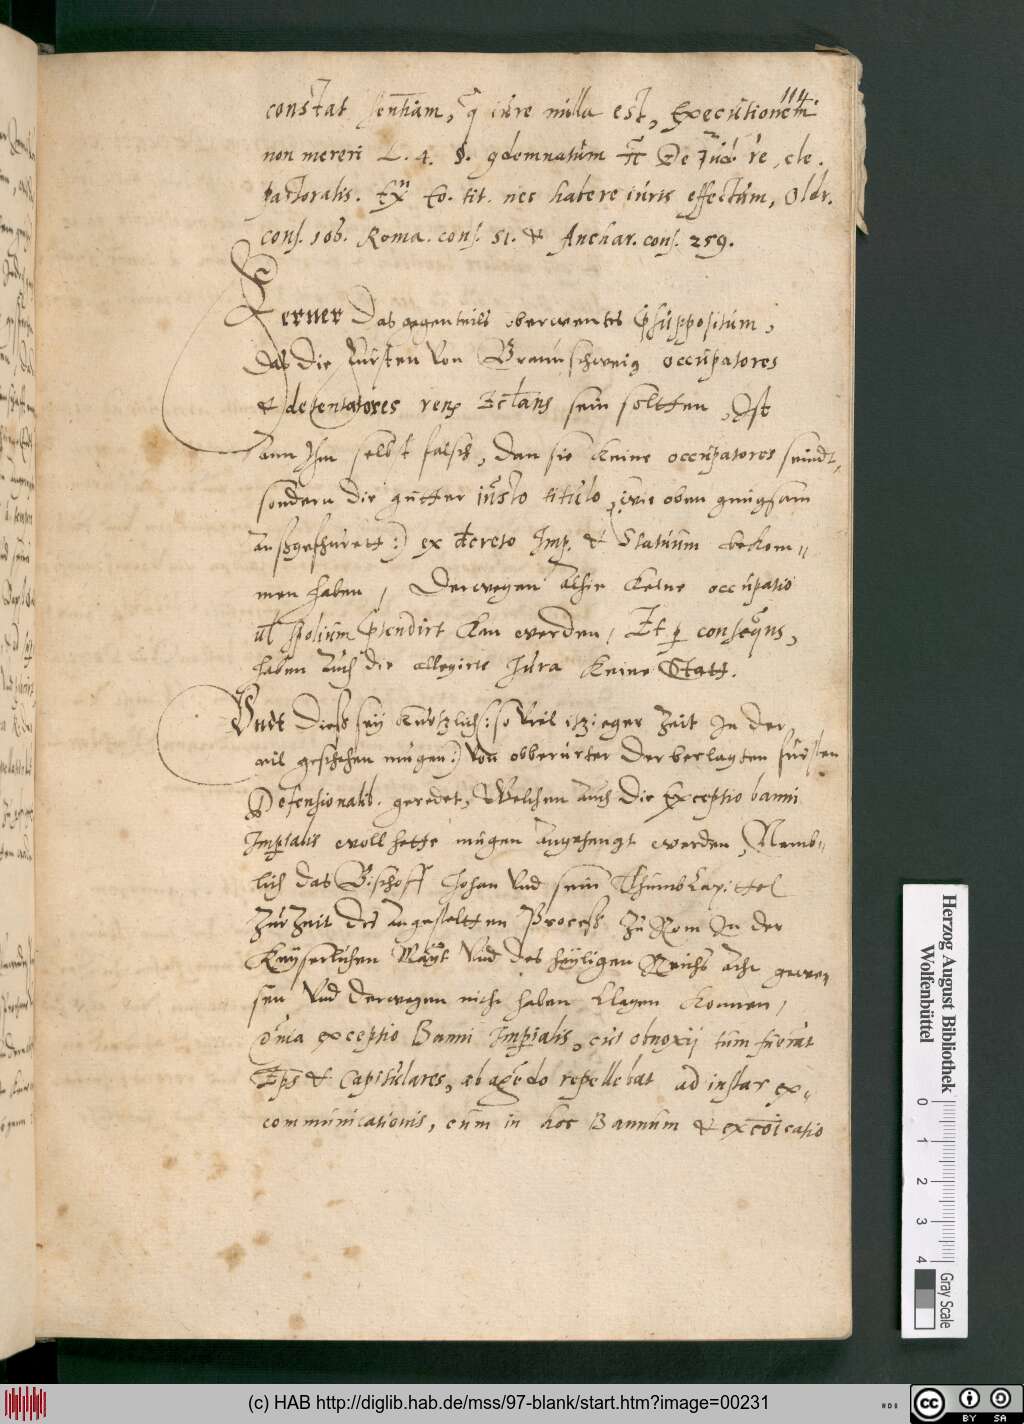 114
constat sententiam, q̃ iure nulla est, Executionem
non mereri L. 4. §. ꝯdemnatum ff De Jud. re, cle.
pastoralis. Ex̃ Eo. tit. nec habere iuris effectum, Oldr.
cons. 106. Roma. cons. 51. & Anchar. cons. 259.
Ferner Das gegenteils oberwentes p̃suppositum,
das die Fursten von Braunschweig occupatores
& detentatores rerꝫ Ecclãis sein soltten, Ist
ann Ihm selbst falsch, dan sie keine occupatores seindt,
sondern die gutter iusto titulo, wie oben gnugsam
außgefhurett:) ex decreto Imp. & Statuum bekom=
men haben, Derwegen alhie keine occupatio
vel spolium p̃tendirt kan werden, Et p conseq̃ns,
haben auch die allegirte Jura keine Statt.
Vndt dieß sey kurtzlich (:so viel itziger Zeit In der
eil geschehen mugen:) von obberurter der beclagten fursten
Defensionalib. geredet, Welchen auch die Exceptio banni
Imp̃ialis woll hette mugen angehengt werden, Nemb=
lich das Bischoff Johan vnd sein Thumb Capittel
Zur Zeit des angestaltten Process Zu Rom In der
Kayserlichen Maytt vnd des heyligen Reichs acht gewe=
sen vnd derwegen nicht haben Clagen konnen,
exceptio Banni Imp̃ialis, cui obnoxij tum fuerãt
Ep̃s & Capitulares, ab agẽdo repellebat ad instar ex=
communicationis, cum in hoc Bannum & excõicatio
Herzog August Bibliothek
Wolfenbüttel
0 1 2 3 4
Gray Scale
(c) HAB http://diglib.hab.de/mss/97-blank/start.htm?image=00231
cc BY SA